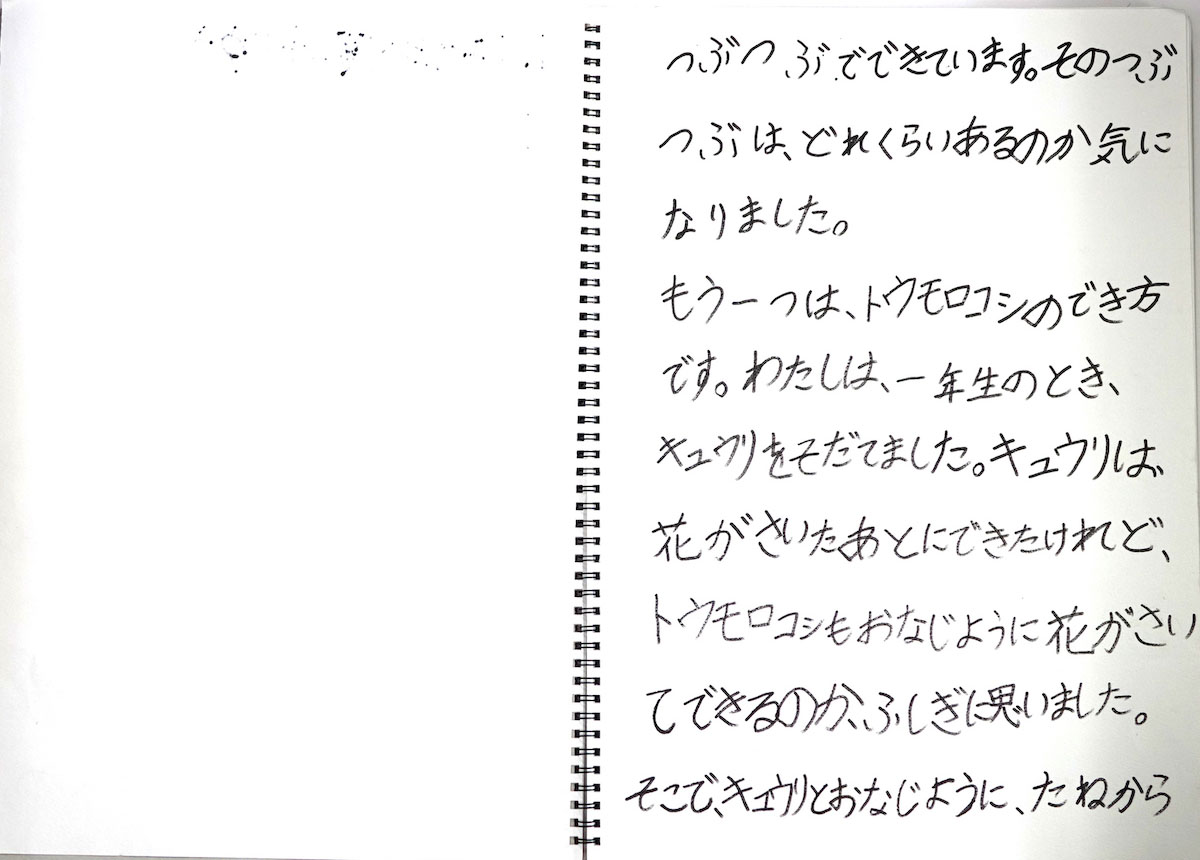 つぶつぶでできています。そのつぶ
つぶは、どれくらいあるのか気に
なりました。
もう一つは、トウモロコシのでき方
です。わたしは、一年生のとき、
キュウリをそだてました。キュウリは、
花がさいたあとにできたけれど、
トウモロコシもおなじように花がさい
てできるのか、ふしぎに思いました。
そこで、キュウリとおなじように、たねから